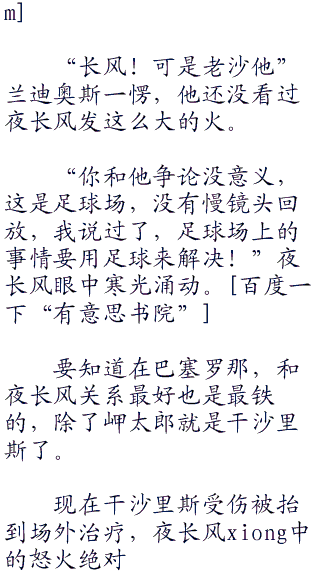 m]
“长风！可是老沙他”
兰迪奥斯一愣，他还没看过
夜长风发这么大的火。
“你和他争论没意义，
这是足球场，没有慢镜头回
放，我说过了，足球场上的
事情要用足球来解决！”夜
长风眼中寒光涌动。[百度一
下“有意思书院”]
要知道在巴塞罗那，和
夜长风关系最好也是最铁
的，除了岬太郎就是干沙里
斯了。
现在干沙里斯受伤被抬
到场外治疗，夜长风xiong中
的怒火绝对